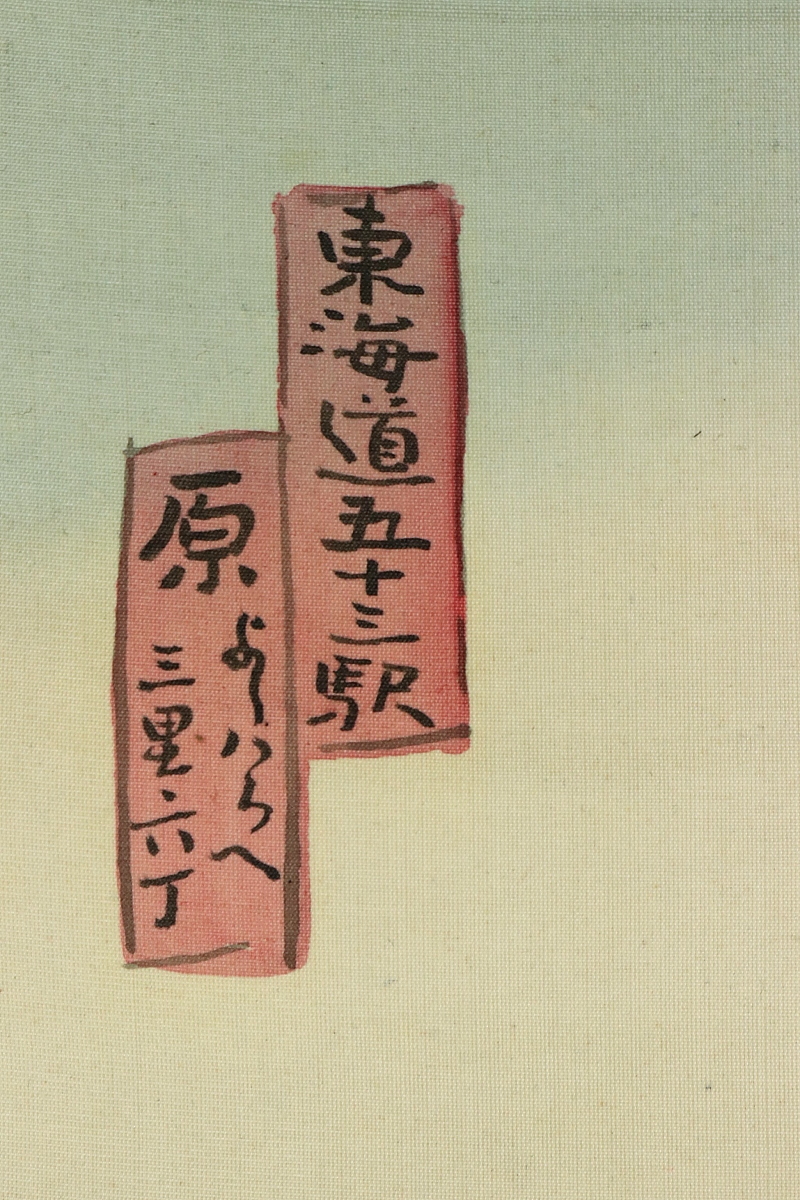 東海道五十三駅
原
よしハらへ
三里六丁